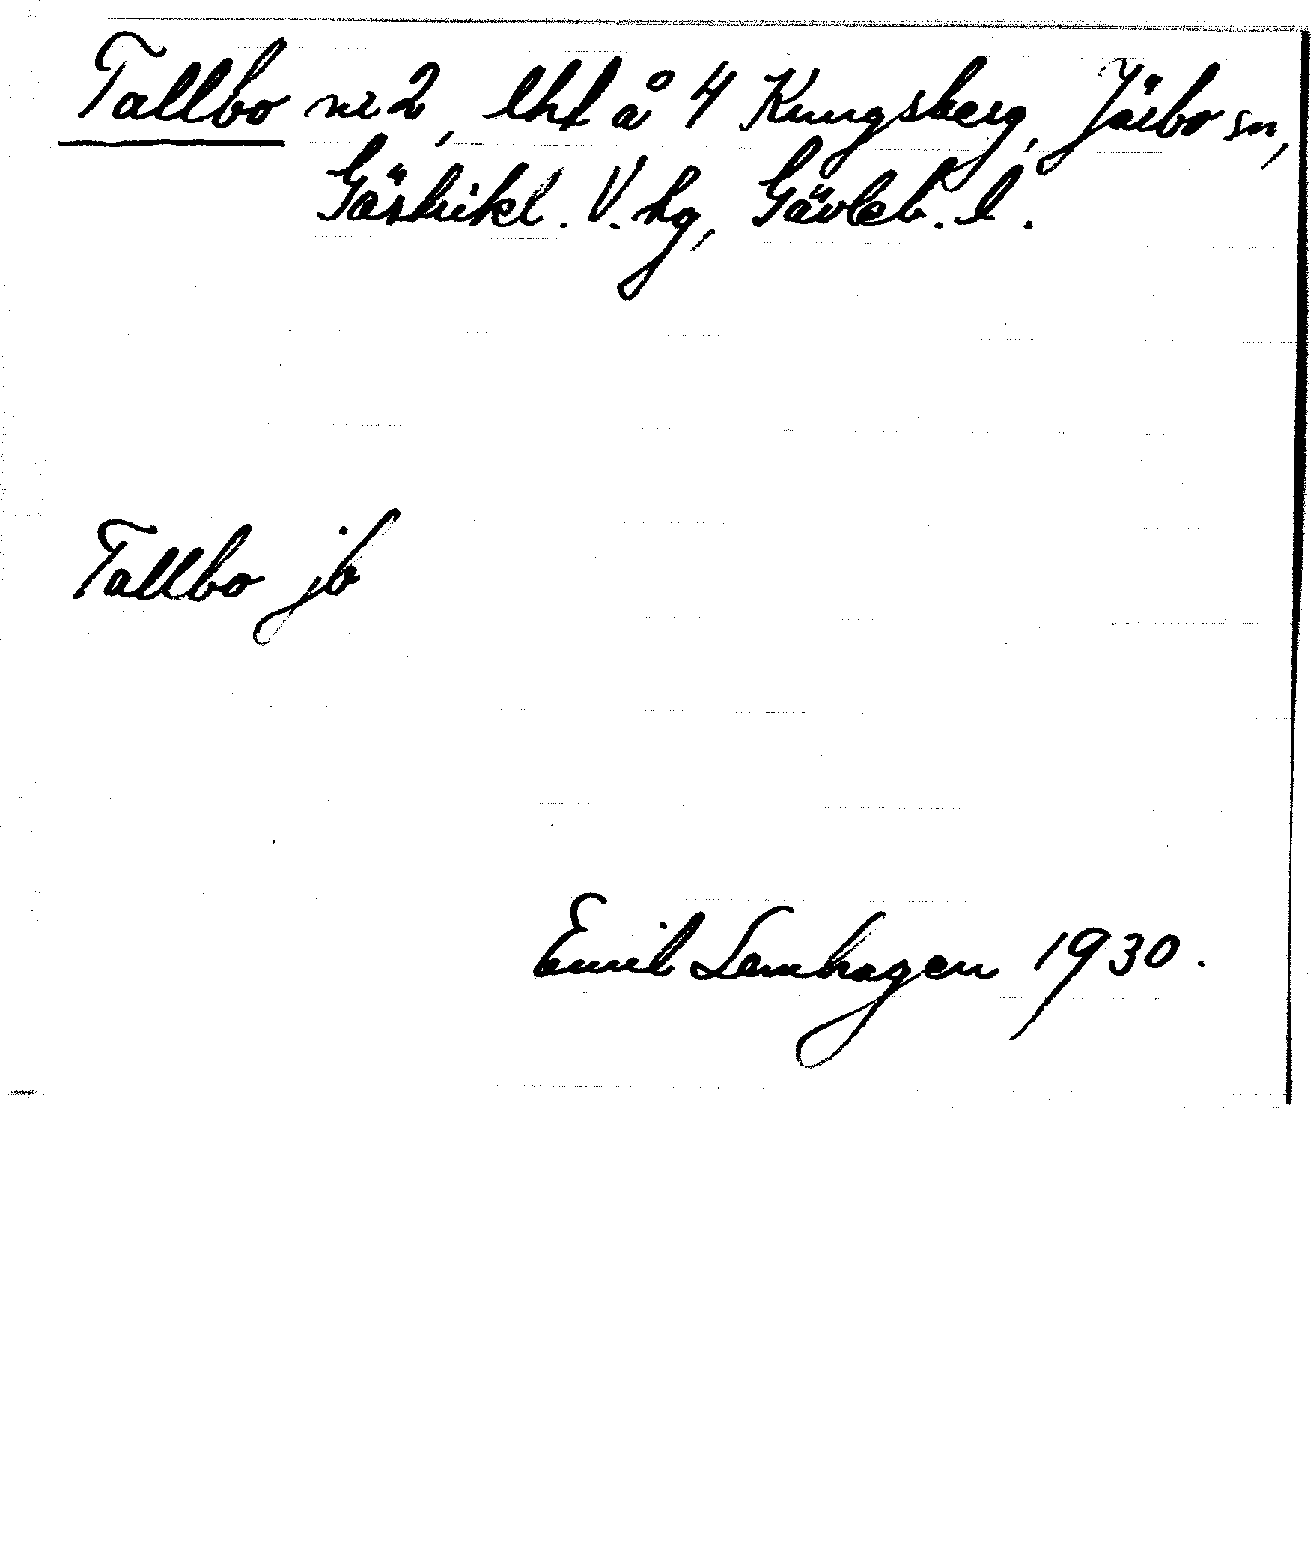 Tallbo nr 2, lht å 4 Kungsberg, Järbo sn,
Gästrikl. V. hg, Gävleb. l.
Tallbo jb
Emil Lamhagen 1930.